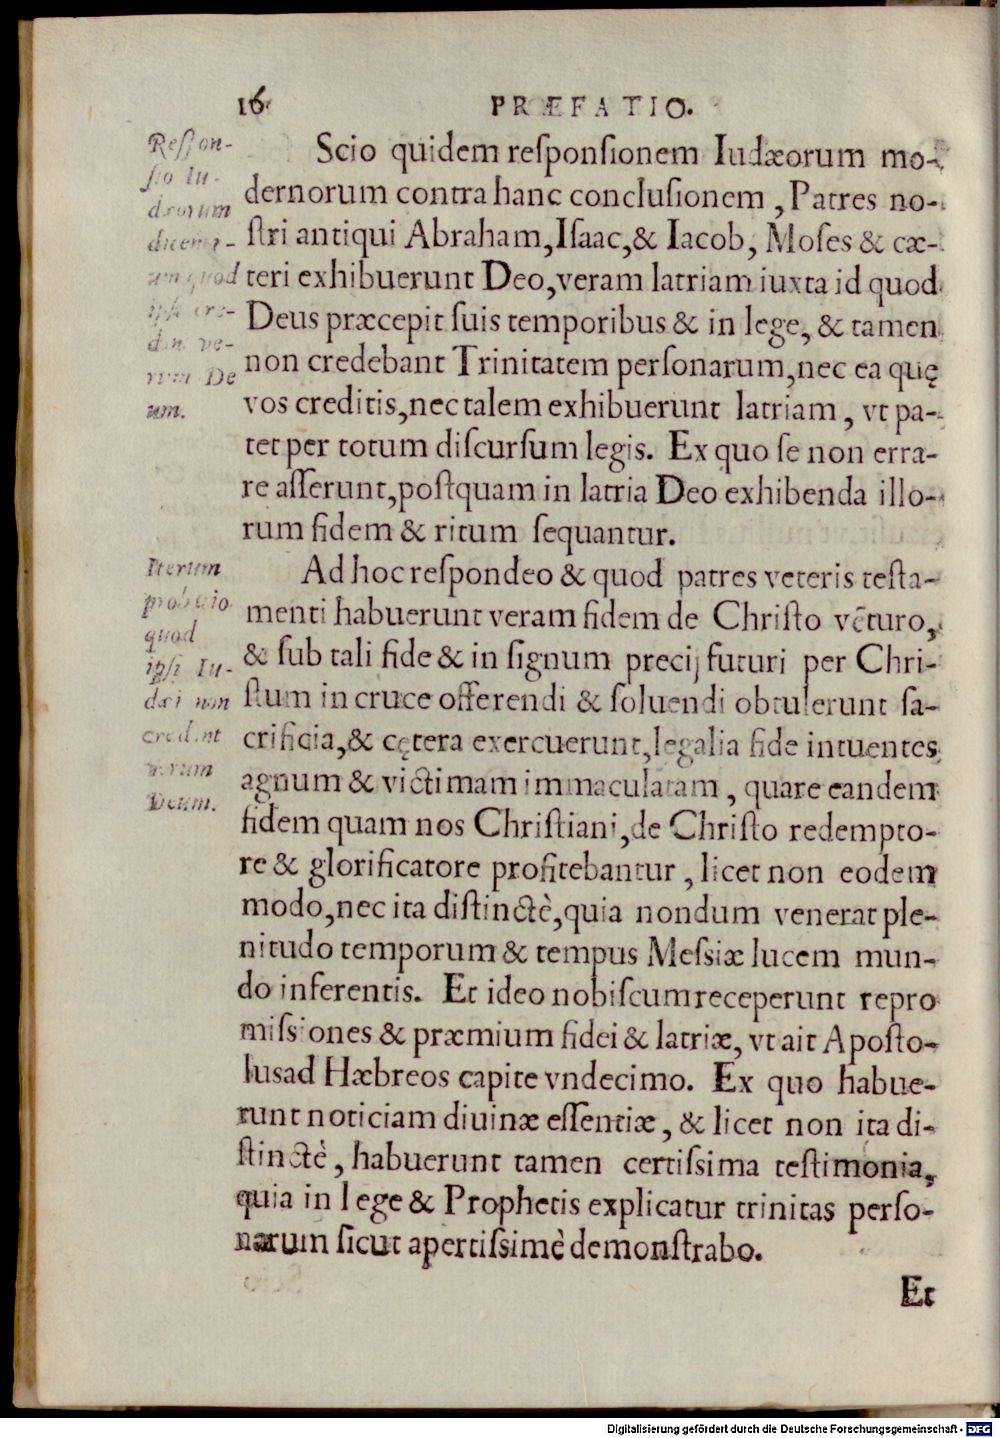 16 PRÆFATIO.
Respon-
sio Iu-
dæorum
quod
um.
Scio quidem reſponſionem Iudæorum mo-
dernorum contra hanc concluſionem, Patres no-
ſtri antiqui Abraham, Iſaac, & Iacob, Moſes & cæ-
teri exhibuerunt Deo, veram latriam iuxta id quod
Deus præcepit ſuis temporibus & in lege, & tamen
non credebant Trinitatem perſonarum, nec ea quę
vos creditis, nec talem exhibuerunt latriam, vt pa-
tet per totum diſcurſum legis. Ex quo ſe non erra-
re aſſerunt, poſtquam in latria Deo exhibenda illo-
rum fidem & ritum ſequantur.
Iterum
probatio
quod
ipſi Iu-
dæi non
credunt
verum
Deum.
Ad hoc reſpondeo & quod patres veteris teſta-
menti habuerunt veram fidem de Chriſto vẽturo,
& ſub tali fide & in ſignum precij futuri per Chri-
ſtum in cruce offerendi & ſoluendi obtulerunt ſa-
crificia, & cętera exercuerunt, legalia fide intuentes
agnum & victimam immaculatam, quare eandem
fidem quam nos Chriſtiani, de Chriſto redempto-
re & glorificatore profitebantur, licet non eodem
modo, nec ita diſtinctè, quia nondum venerat ple-
nitudo temporum & tempus Meſsiæ lucem mun-
do inferentis. Et ideo nobiſcum receperunt repro
miſsiones & præmium fidei & latriæ, vt ait Apoſto-
lus ad Hæbreos capite vndecimo. Ex quo habue-
runt noticiam diuinæ eſſentiæ, & licet non ita di-
ſtinctè, habuerunt tamen certiſsima teſtimonia,
quia in lege & Prophetis explicatur trinitas perſo-
narum ſicut apertiſsimè demonſtrabo.
Et
Digitalisierung gefördert durch die Deutsche Forschungsgemeinschaft - DFG